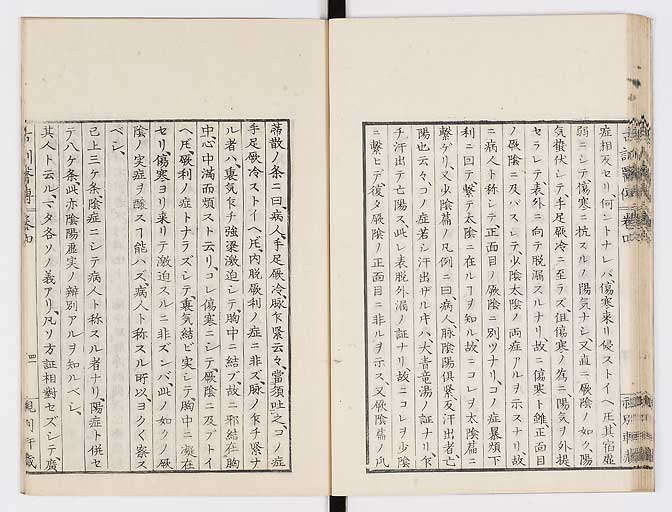 症相反セリ何ントナレバ傷寒来リ侵ストイヘ𪜈其宿虚
弱ニシテ傷寒ニ抗スルノ陽気ナシ又直ニ厥陰ノ如ク陽
気攅伏シテ手足厥冷ニ至ラズ但傷寒ノ為ニ陽気ヲ外提
セラレテ表外ニ向テ脱漏スルナリ故ニ傷寒ト雖正面目
ノ厥陰ニ及バスシテ少陰太陰ノ両症アルヲ示スナリ故
ニ病人ト称シテ正面目ノ厥陰ニ別ツナリコノ症暴煩下
利ニ回テ繋テ太陰ニ在ルヿヲ知ル故ニコレヲ太陰篇ニ
繋ゲリ又少陰篇ノ凡例ニ曰病人脉陰陽倶緊反汗出者亡
陽也云々コノ症若シ汗出ザルキハ大青竜湯ノ証ナリ乍
チ汗出テ亡陽ス此レ表脱外漏ノ証ナリ故ニコレヲ少陰
ニ繋ヒデ復タ厥陰ノ正面目ニ非ルヲ示ス又厥陰篇ノ瓜
蒂散ノ条ニ曰病人手足厥冷脉乍緊云々當須吐之コノ症
手足厥冷ストイヘ𪜈内脱厥利ノ症ニ非ズ脉ノ乍チ緊ナ
ル者ハ裏気乍チ強梁激迫シテ胸中ニ結ブ故ニ邪結在胸
中心中滿而煩スト云リコレ傷寒ニシテ厥陰ニ及デトイ
ヘ𪜈厥利ノ症トナラズシテ裏気結ビ実シテ胸中ニ凝在
セリ傷寒ヨリ来リテ激迫スルニ非ズンバ此ノ如クノ厥
陰ノ実症ヲ醸スヿ能ハズ病人ト称スル所以ヨクぐ察ス
ベシ
已上三ケ条陰症ニシテ病人ト称スル者ナリ陽症ト併セ
テ八ケ条此亦陰陽虚実ノ辨別アルヲ知ルベシ
其人ト云ルマタ各ソノ義アリ凡ソ方証相對セズシテ廣